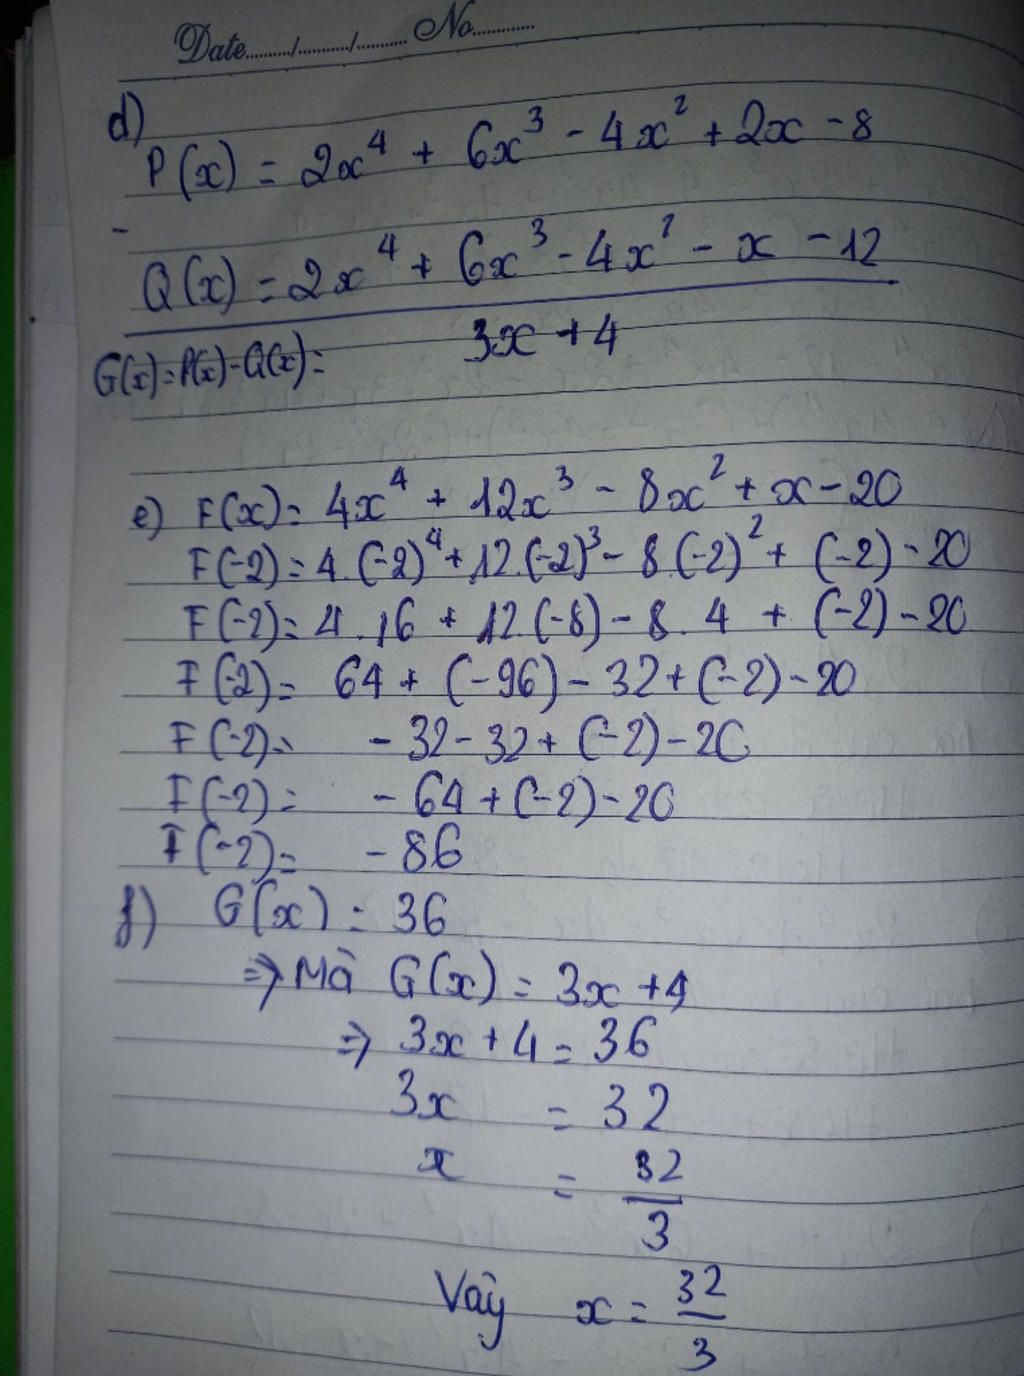 Date........./.........../.......... No............
d)
P(x) = 2x⁴ + 6x³ - 4x² + 2x - 8
-
Q(x) = 2x⁴ + 6x³ - 4x² - x - 12
G(x) = P(x) - Q(x) = 3x + 4
e) F(x) = 4x⁴ + 12x³ - 8x² + x - 20
F(-2) = 4.(-2)⁴ + 12.(-2)³ - 8.(-2)² + (-2) - 20
F(-2) = 4.16 + 12.(-8) - 8.4 + (-2) - 20
F(-2) = 64 + (-96) - 32 + (-2) - 20
F(-2) = -32 - 32 + (-2) - 20
F(-2) = -64 + (-2) - 20
F(-2) = -86
f) G(x) = 36
=> Mà G(x) = 3x + 4
=> 3x + 4 = 36
3x = 32
x = 32/3
Vậy x = 32/3